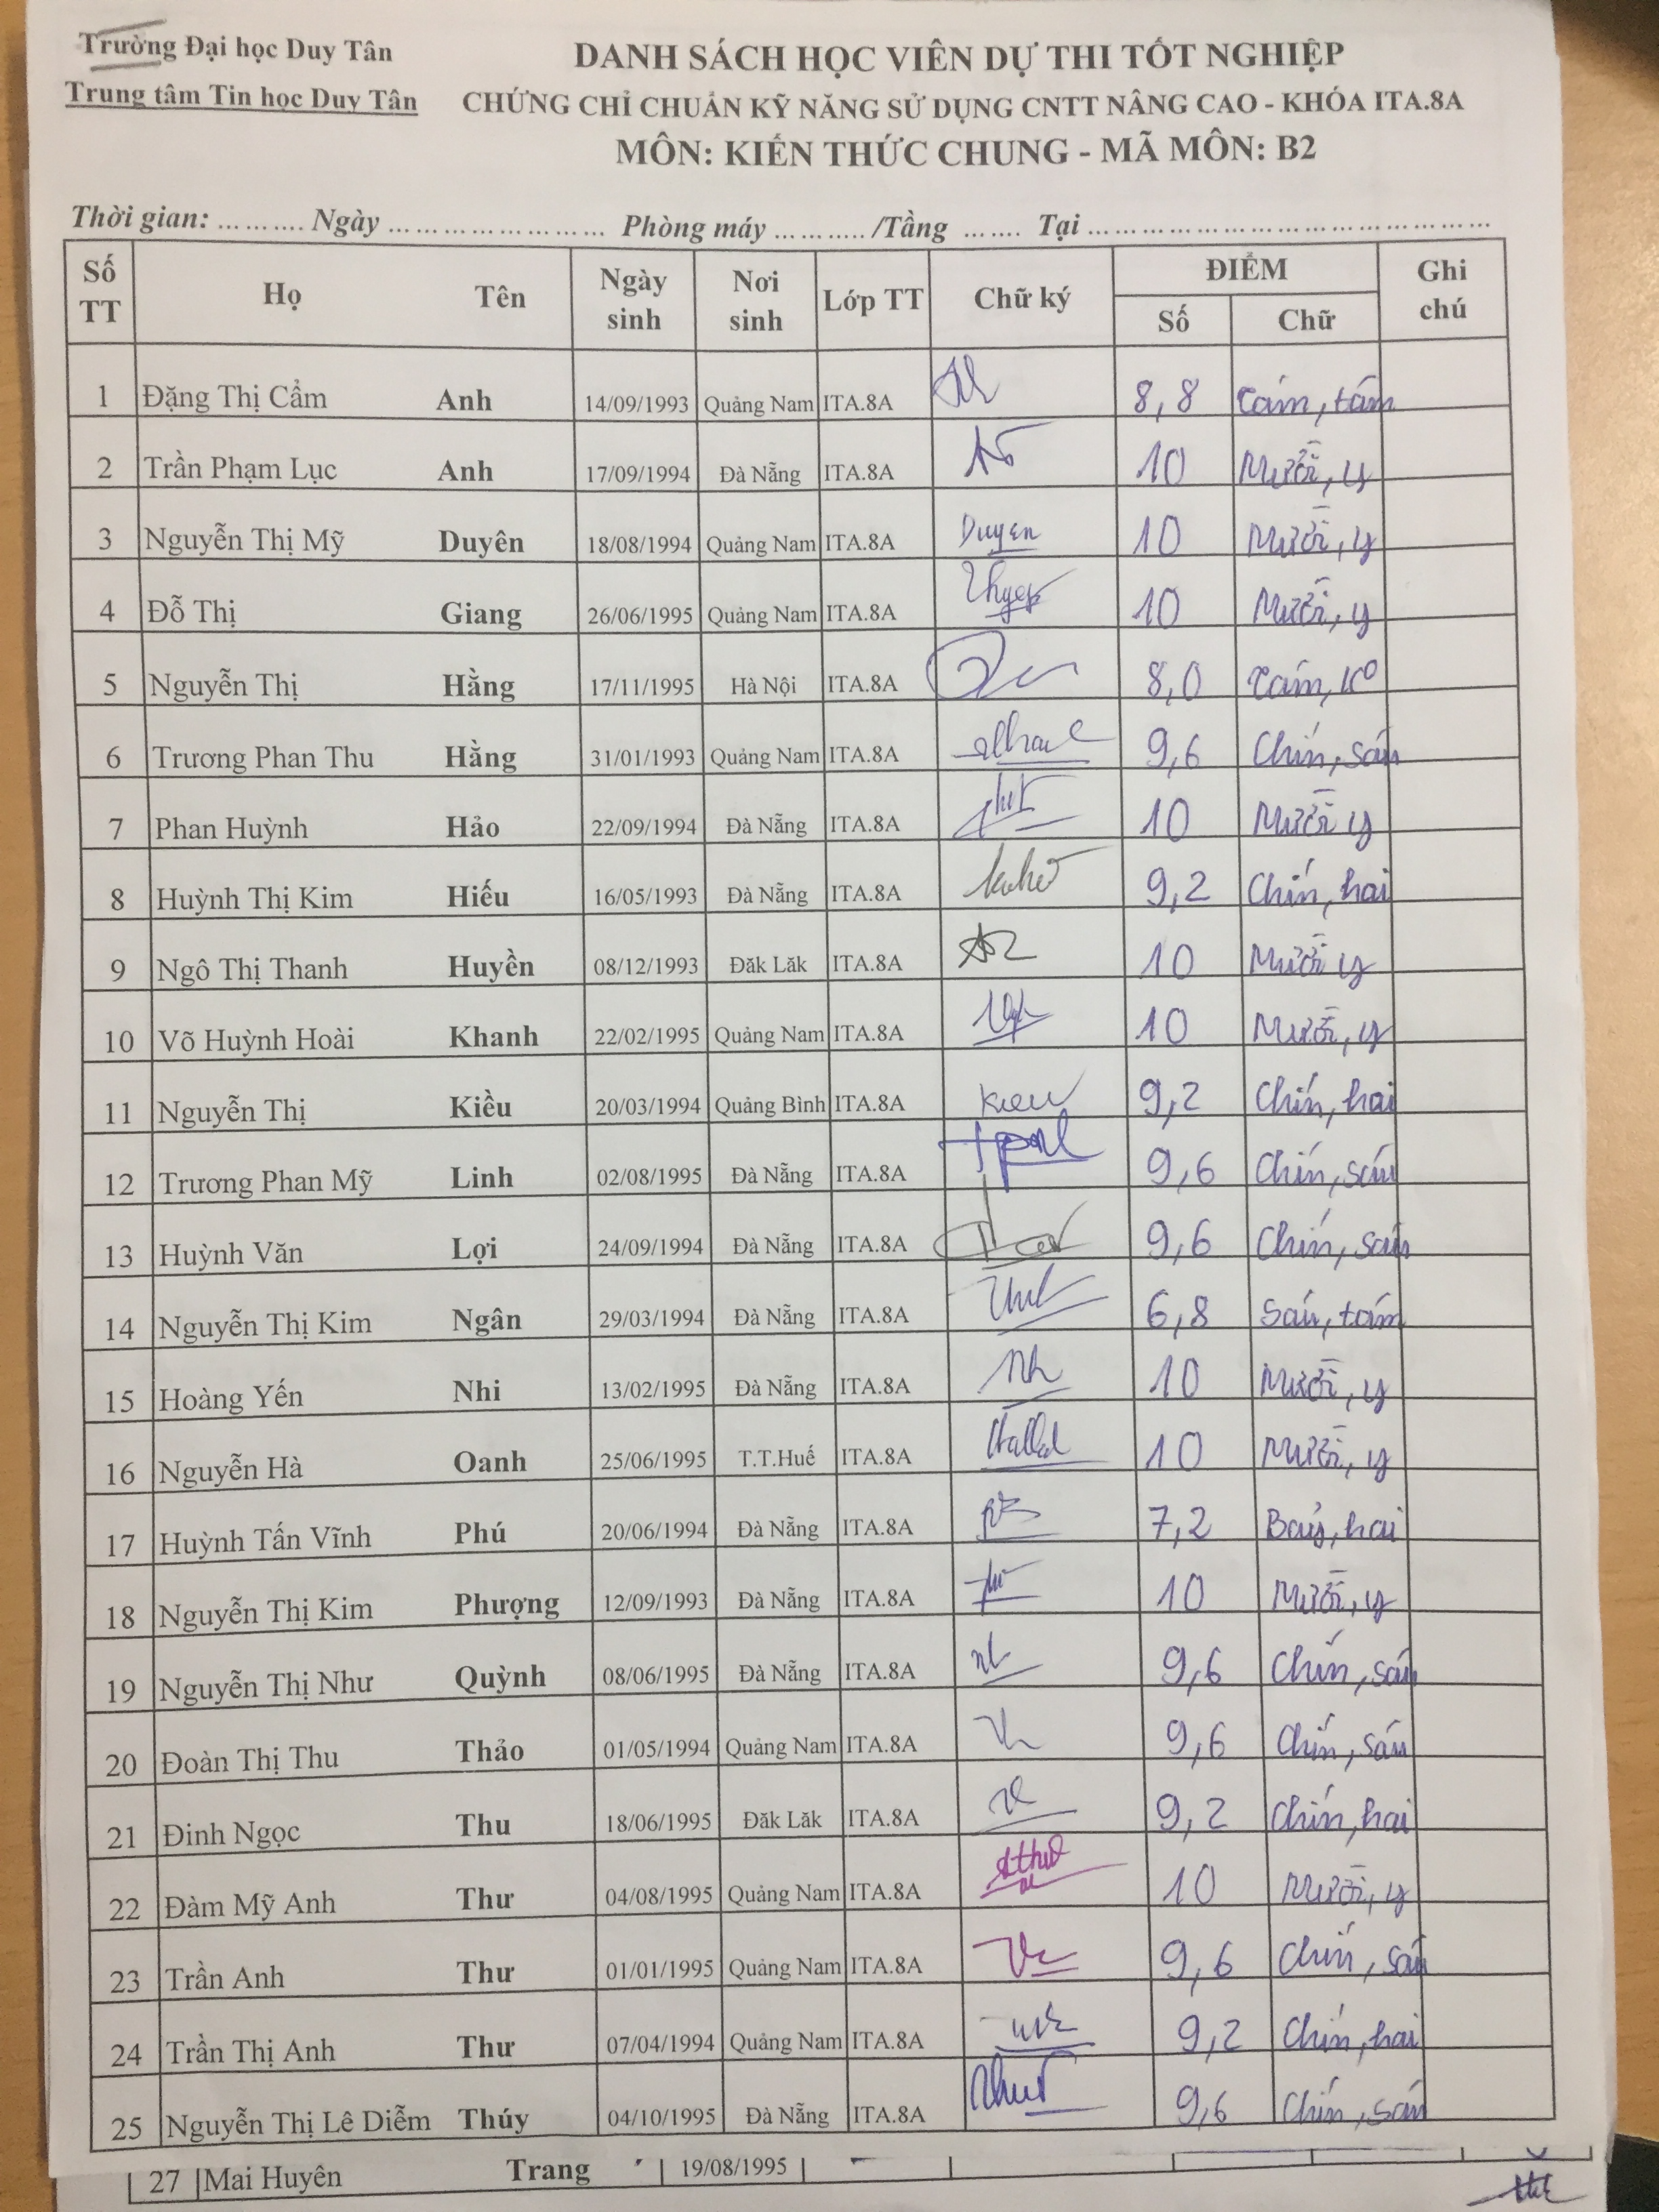 Trường Đại học Duy Tân
Trung tâm Tin học Duy Tân
DANH SÁCH HỌC VIÊN DỰ THI TỐT NGHIỆP
CHỨNG CHỈ CHUẨN KỸ NĂNG SỬ DỤNG CNTT NÂNG CAO - KHÓA ITA.8A
MÔN: KIẾN THỨC CHUNG - MÃ MÔN: B2
Thời gian: .......... Ngày ........................ Phòng máy .......... /Tầng ....... Tại ............................................
Số TT Họ Tên Ngày sinh Nơi sinh Lớp TT Chữ ký ĐIỂM Ghi chú
Số Chữ
1 Đặng Thị Cẩm Anh 14/09/1993 Quảng Nam ITA.8A 8,8 Tám, tám
2 Trần Phạm Lục Anh 17/09/1994 Đà Nẵng ITA.8A 10 Mười, y
3 Nguyễn Thị Mỹ Duyên 18/08/1994 Quảng Nam ITA.8A Duyen 10 Mười, y
4 Đỗ Thị Giang 26/06/1995 Quảng Nam ITA.8A 10 Mười, y
5 Nguyễn Thị Hằng 17/11/1995 Hà Nội ITA.8A 8,0 Tám, ko
6 Trương Phan Thu Hằng 31/01/1993 Quảng Nam ITA.8A 9,6 Chín, sáu
7 Phan Huỳnh Hảo 22/09/1994 Đà Nẵng ITA.8A 10 Mười y
8 Huỳnh Thị Kim Hiếu 16/05/1993 Đà Nẵng ITA.8A 9,2 Chín, hai
9 Ngô Thị Thanh Huyền 08/12/1993 Đăk Lăk ITA.8A 10 Mười y
10 Võ Huỳnh Hoài Khanh 22/02/1995 Quảng Nam ITA.8A 10 Mười, y
11 Nguyễn Thị Kiều 20/03/1994 Quảng Bình ITA.8A Kieu 9,2 Chín, hai
12 Trương Phan Mỹ Linh 02/08/1995 Đà Nẵng ITA.8A 9,6 Chín, sáu
13 Huỳnh Văn Lợi 24/09/1994 Đà Nẵng ITA.8A 9,6 Chín, sáu
14 Nguyễn Thị Kim Ngân 29/03/1994 Đà Nẵng ITA.8A 6,8 Sáu, tám
15 Hoàng Yến Nhi 13/02/1995 Đà Nẵng ITA.8A 10 Mười, y
16 Nguyễn Hà Oanh 25/06/1995 T.T.Huế ITA.8A 10 Mười, y
17 Huỳnh Tấn Vĩnh Phú 20/06/1994 Đà Nẵng ITA.8A 7,2 Bảy, hai
18 Nguyễn Thị Kim Phượng 12/09/1993 Đà Nẵng ITA.8A 10 Mười, y
19 Nguyễn Thị Như Quỳnh 08/06/1995 Đà Nẵng ITA.8A 9,6 Chín, sáu
20 Đoàn Thị Thu Thảo 01/05/1994 Quảng Nam ITA.8A 9,6 Chín, sáu
21 Đinh Ngọc Thu 18/06/1995 Đăk Lăk ITA.8A 9,2 Chín, hai
22 Đàm Mỹ Anh Thư 04/08/1995 Quảng Nam ITA.8A 10 Mười, y
23 Trần Anh Thư 01/01/1995 Quảng Nam ITA.8A 9,6 Chín, sáu
24 Trần Thị Anh Thư 07/04/1994 Quảng Nam ITA.8A 9,2 Chín, hai
25 Nguyễn Thị Lê Diễm Thúy 04/10/1995 Đà Nẵng ITA.8A 9,6 Chín, sáu
27 Mai Huyên Trang 19/08/1995